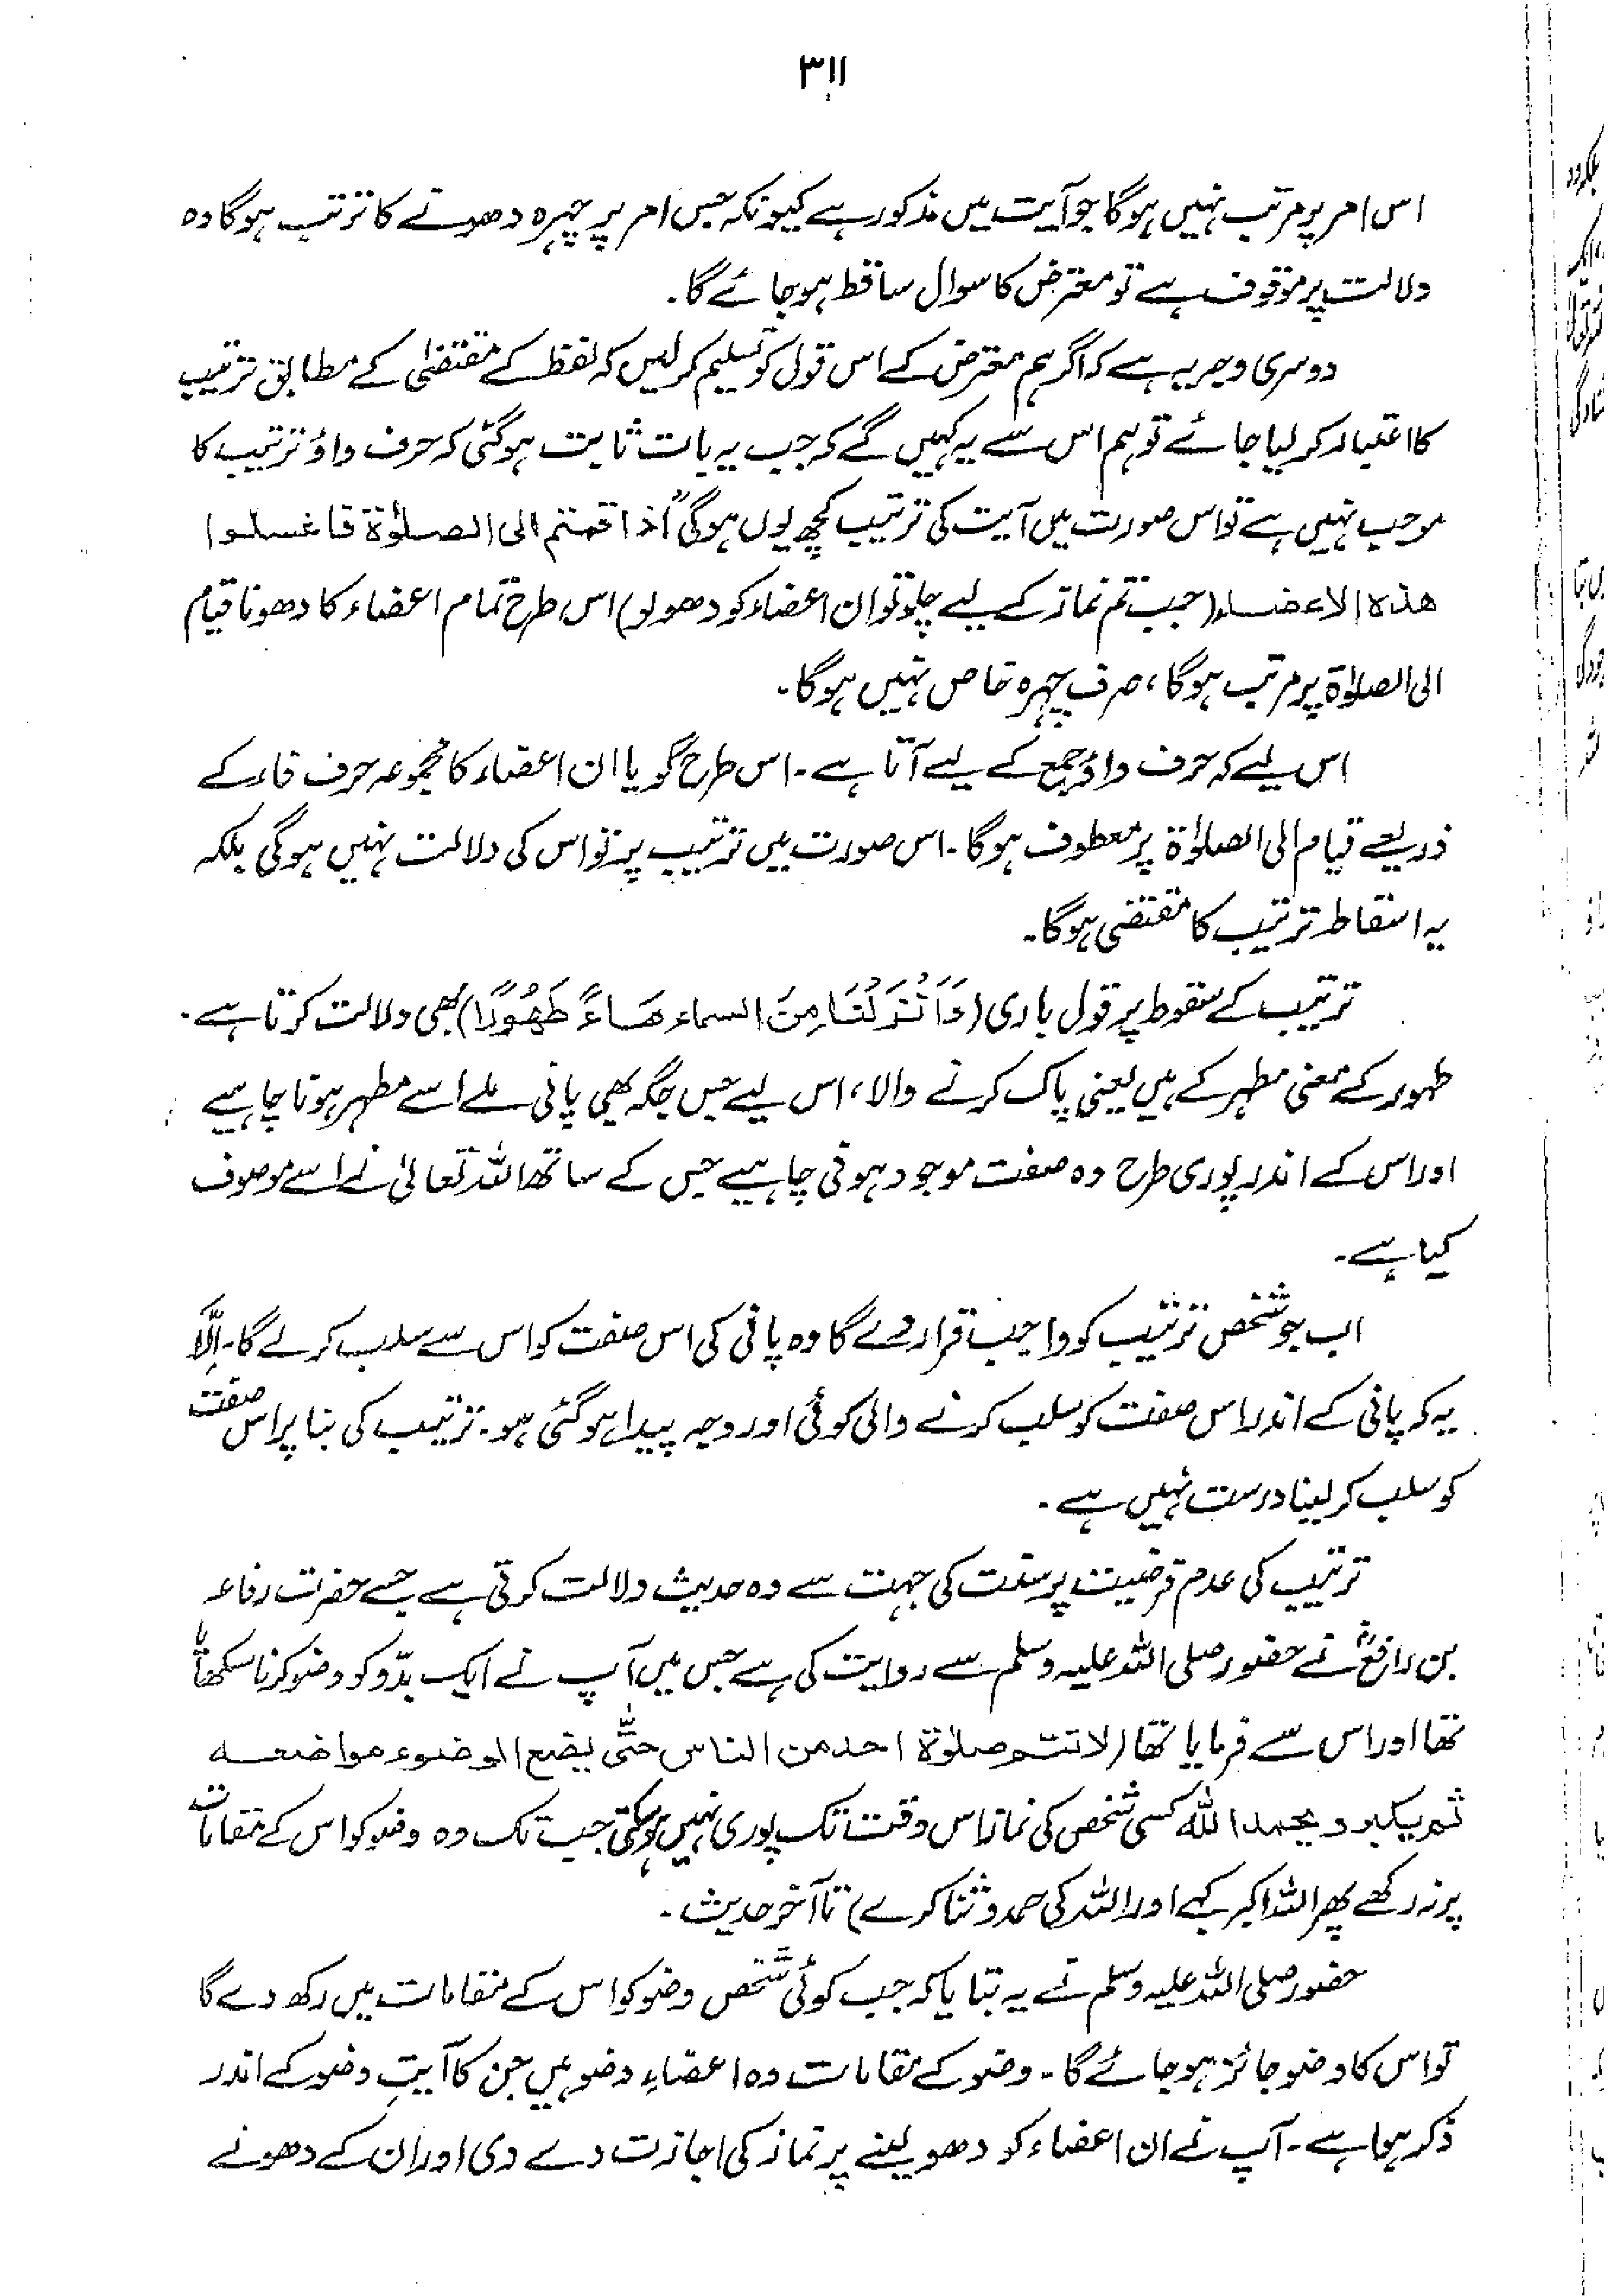 ۳۱۱
اس امر پر مرتب نہیں ہوگا جو آیت میں مذکور ہے کیونکہ جس امر پر چہرہ دھونے کا ترتب ہوگا وہ
دلالت پر موقوف ہے تو معترض کا سوال ساقط ہو جائے گا۔
دوسری وجہ یہ ہے کہ اگر ہم معترض کے اس قول کو تسلیم کر لیں کہ لفظ کے مقتضیٰ کے مطابق ترتیب
کا اعتبار کر لیا جائے تو ہم اس سے یہ کہیں گے کہ جب یہ بات ثابت ہوگئی کہ حرف واؤ ترتیب کا
موجب نہیں ہے تو اس صورت میں آیت کی ترتیب کچھ یوں ہوگی "اذا قمتم الی الصلوٰۃ فاغسلوا
ھذہ الاعضاء (جب تم نماز کے لیے چلو تو ان اعضاء کو دھو لو) اس طرح تمام اعضاء کا دھونا قیام
الی الصلوٰۃ پر مرتب ہوگا، صرف چہرہ خاص نہیں ہوگا۔
اس لیے کہ حرف واؤ جمع کے لیے آتا ہے۔ اس طرح گویا ان اعضاء کا مجموعہ حرف فاء کے
ذریعے قیام الی الصلوٰۃ پر معطوف ہوگا۔ اس صورت میں ترتیب پر تو اس کی دلالت نہیں ہوگی بلکہ
یہ اسقاط ترتیب کا مقتضی ہوگا۔
ترتیب کے سقوط پر قول باری (وَاَنْزَلْنَا مِنَ السماء مَاءً طَهُوْرًا) بھی دلالت کرتا ہے۔
طہور کے معنی مطہر کے ہیں یعنی پاک کرنے والا، اس لیے جس جگہ بھی پانی ملے اسے مطہر ہونا چاہیے
اور اس کے اندر پوری طرح وہ صفت موجود ہونی چاہیے جس کے ساتھ اللہ تعالیٰ نے اسے موصوف
کیا ہے۔
اب جو شخص ترتیب کو واجب قرار دے گا وہ پانی کی اس صفت کو اس سے سلب کر لے گا۔ اِلَّا
یہ کہ پانی کے اندر اس صفت کو سلب کرنے والی کوئی اور وجہ پیدا ہو گئی ہو۔ ترتیب کی بنا پر اس صفت
کو سلب کر لینا درست نہیں ہے۔
ترتیب کی عدم فرضیت پر سنت کی جہت سے وہ حدیث دلالت کرتی ہے جسے حضرت رفاعہ
بن رافعؓ نے حضور صلی اللہ علیہ وسلم سے روایت کی ہے جس میں آپ نے ایک بدّو کو وضو کرنا سکھایا
تھا اور اس سے فرمایا تھا (لا تتم صلوٰۃ احد من الناس حتّٰی یضع الوضوء مواضعه
ثم یکبر و یحمد الله کسی شخص کی نماز اس وقت تک پوری نہیں ہو سکتی جب تک وہ وضو کو اس کے مقامات
پر نہ رکھے پھر اللہ اکبر کہے اور اللہ کی حمد و ثنا کرے) تا آخر حدیث۔
حضور صلی اللہ علیہ وسلم نے یہ بتایا کہ جب کوئی شخص وضو کو اس کے مقامات میں رکھ دے گا
تو اس کا وضو جائز ہو جائے گا۔ وضو کے مقامات وہ اعضاءِ وضو ہیں جن کا آیتِ وضو کے اندر
ذکر ہوا ہے۔ آپ نے ان اعضاء کو دھو لینے پر نماز کی اجازت دے دی اور ان کے دھونے